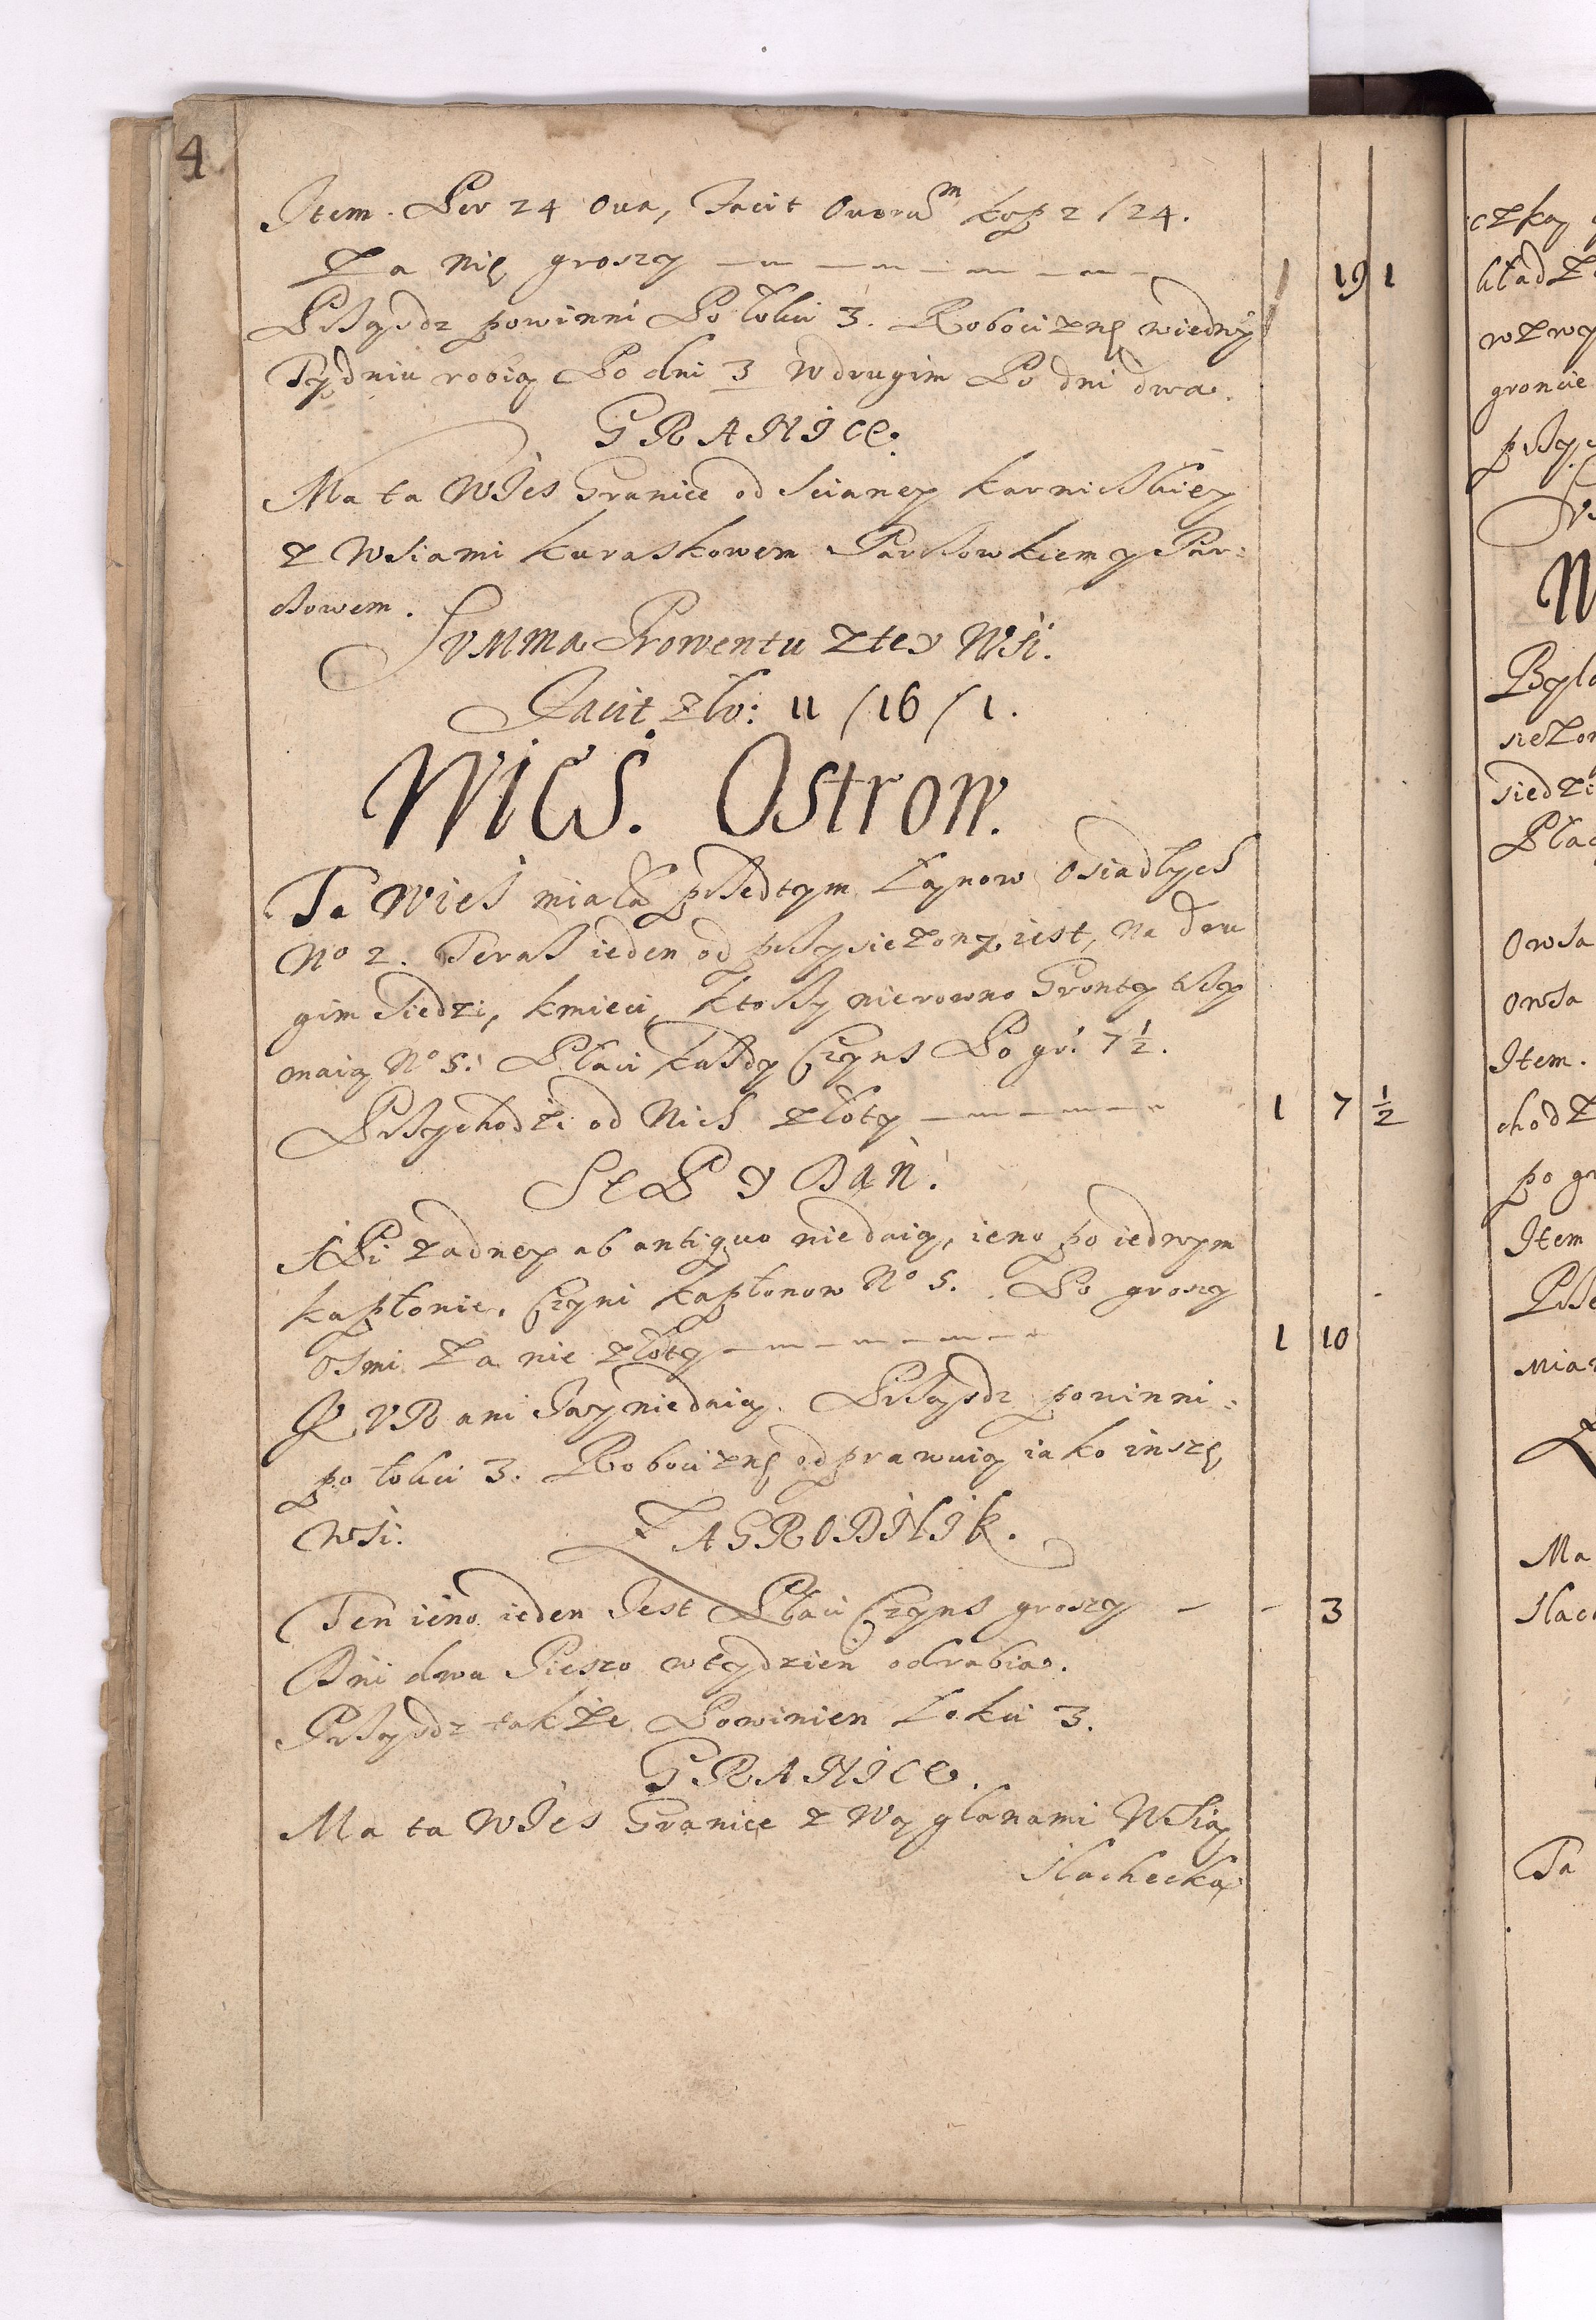 4
Item. Per 24 Oua, Facit Ouoru^m kop 2 / 24.
Za nię groszy — 19 1
Prząsdz powinni Po Łokci 3. Robociznę wiedny
Tydniu robią Po dni 3 W drugim Po dni dwa.
GRANICE.
Ma ta WIes Granice od Scianey karniskiey
z Wsiami kuraskowem Parsowkiem y Par:
sowem.
SVMMA Prowentu z tey Wsi.
Facit zło: 11 / 16 / 1.
WIEŚ. Ostrow.
Ta Wieś miała przedtym Łanow Osiadłych
No 2. Teraz ieden od przysiezony iest, Na dru
gim Siedzi, kmieci, ktorzy nierowno Gronty trzy
maią No 5: Płaci każdy Czyns Po gr: 7½.
Przychodzi od Nich złoty — 1 7 ½
SEP Y DAŃ.
SEPi zadney ab antiquo niedaią, ieno po iednym
kapłonie. Czyni kapłonow No 5. Po groszy
Osmi Za nie złoty — 1 10
KVR ani Iay niedaią. Prząsdz powinni:
po łokci 3. Robociznę odprawuią iako inszę
Wsi. ZAGRODNIK.
Ten ieno ieden Iest Płaci Czyns groszy — - 3
Dni dwa Pieszo w tydzien odrabia.
Prząsdz takze Powinien Łokci 3.
GRANICE.
Ma ta WIes Granice z Wąglanami Wsią
Slachecką